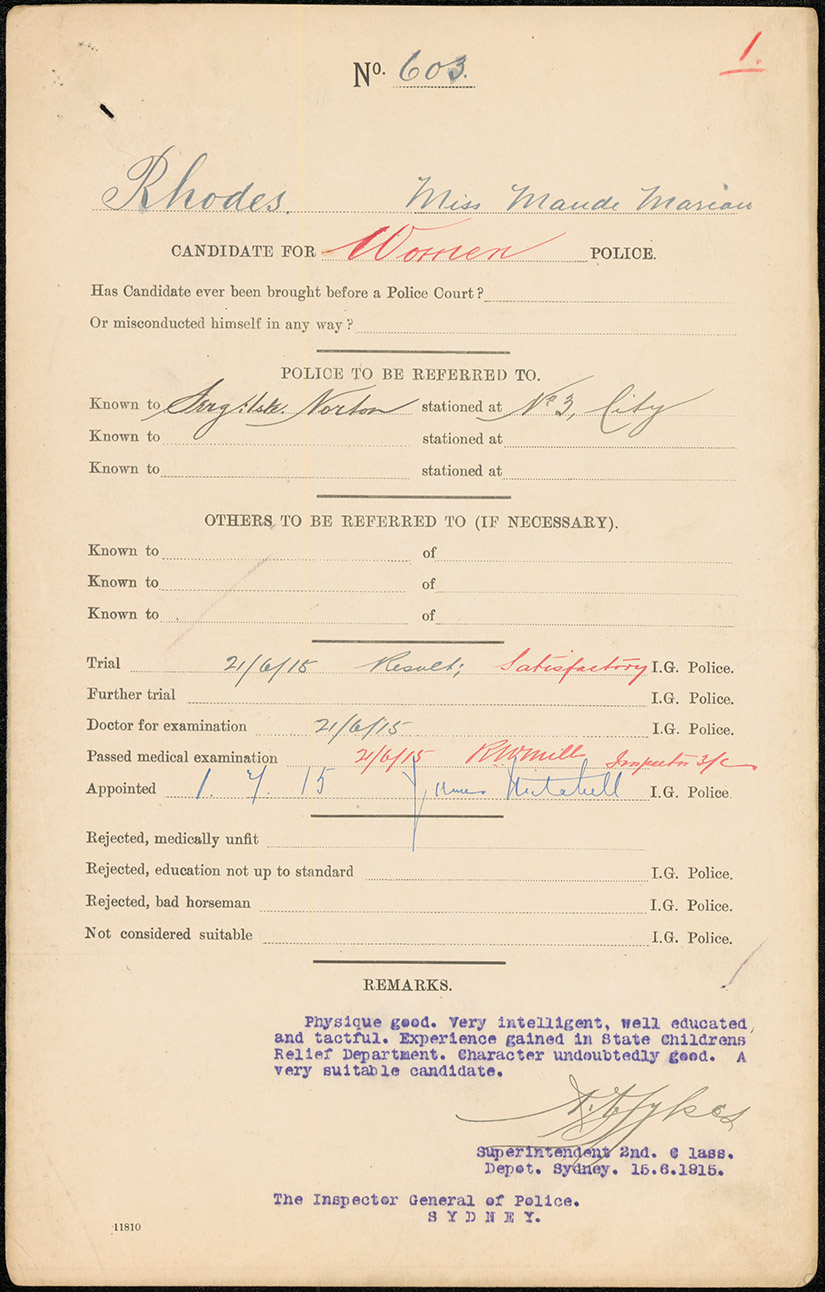 1.
No. 603.
Rhodes. Miss Maude Marian
CANDIDATE FOR Women POLICE.
Has Candidate ever been brought before a Police Court?
Or misconducted himself in any way?
POLICE TO BE REFERRED TO.
Known to Norton stationed at No 3, City
Known to stationed at
Known to stationed at
OTHERS TO BE REFERRED TO (IF NECESSARY).
Known to of
Known to of
Known to of
Trial 21/6/15 Result; Satisfactory I.G. Police.
Further trial I.G. Police.
Doctor for examination 21/6/15 I.G. Police.
Passed medical examination 21/6/15 Inspector
Appointed 1. 7. 15 James Mitchell I.G. Police
Rejected, medically unfit
Rejected, education not up to standard I.G. Police.
Rejected, bad horseman I.G. Police.
Not considered suitable I.G. Police.
REMARKS.
Physique good. Very intelligent, well educated,
and tactful. Experience gained in State Childrens
Relief Department. Character undoubtedly good. A
very suitable candidate.
Sykes
Superintendent 2nd. C lass.
Depot. Sydney. 15.6.1915.
The Inspector General of Police.
S Y D N E Y.
11810